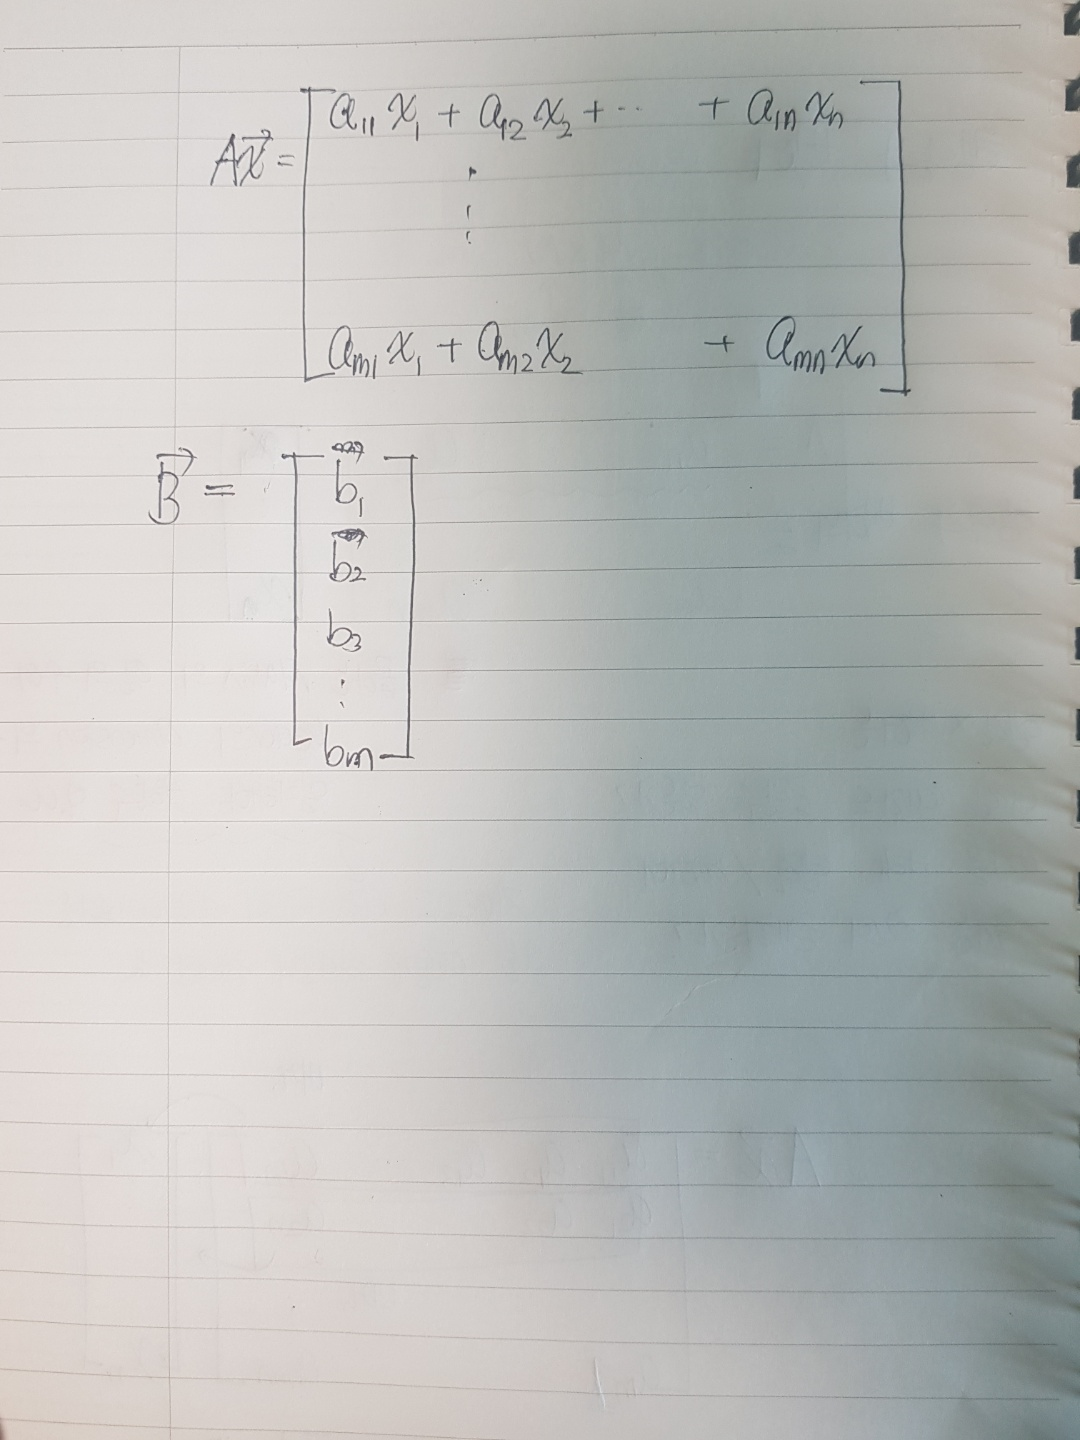 Ax⃗ = [ a₁₁x₁ + a₁₂x₂ + ⋯ + a₁ₙxₙ
⋮
aₘ₁x₁ + aₘ₂x₂ + aₘₙxₙ ]
B⃗ = [ b₁
b₂
b₃
⋮
bₘ ]